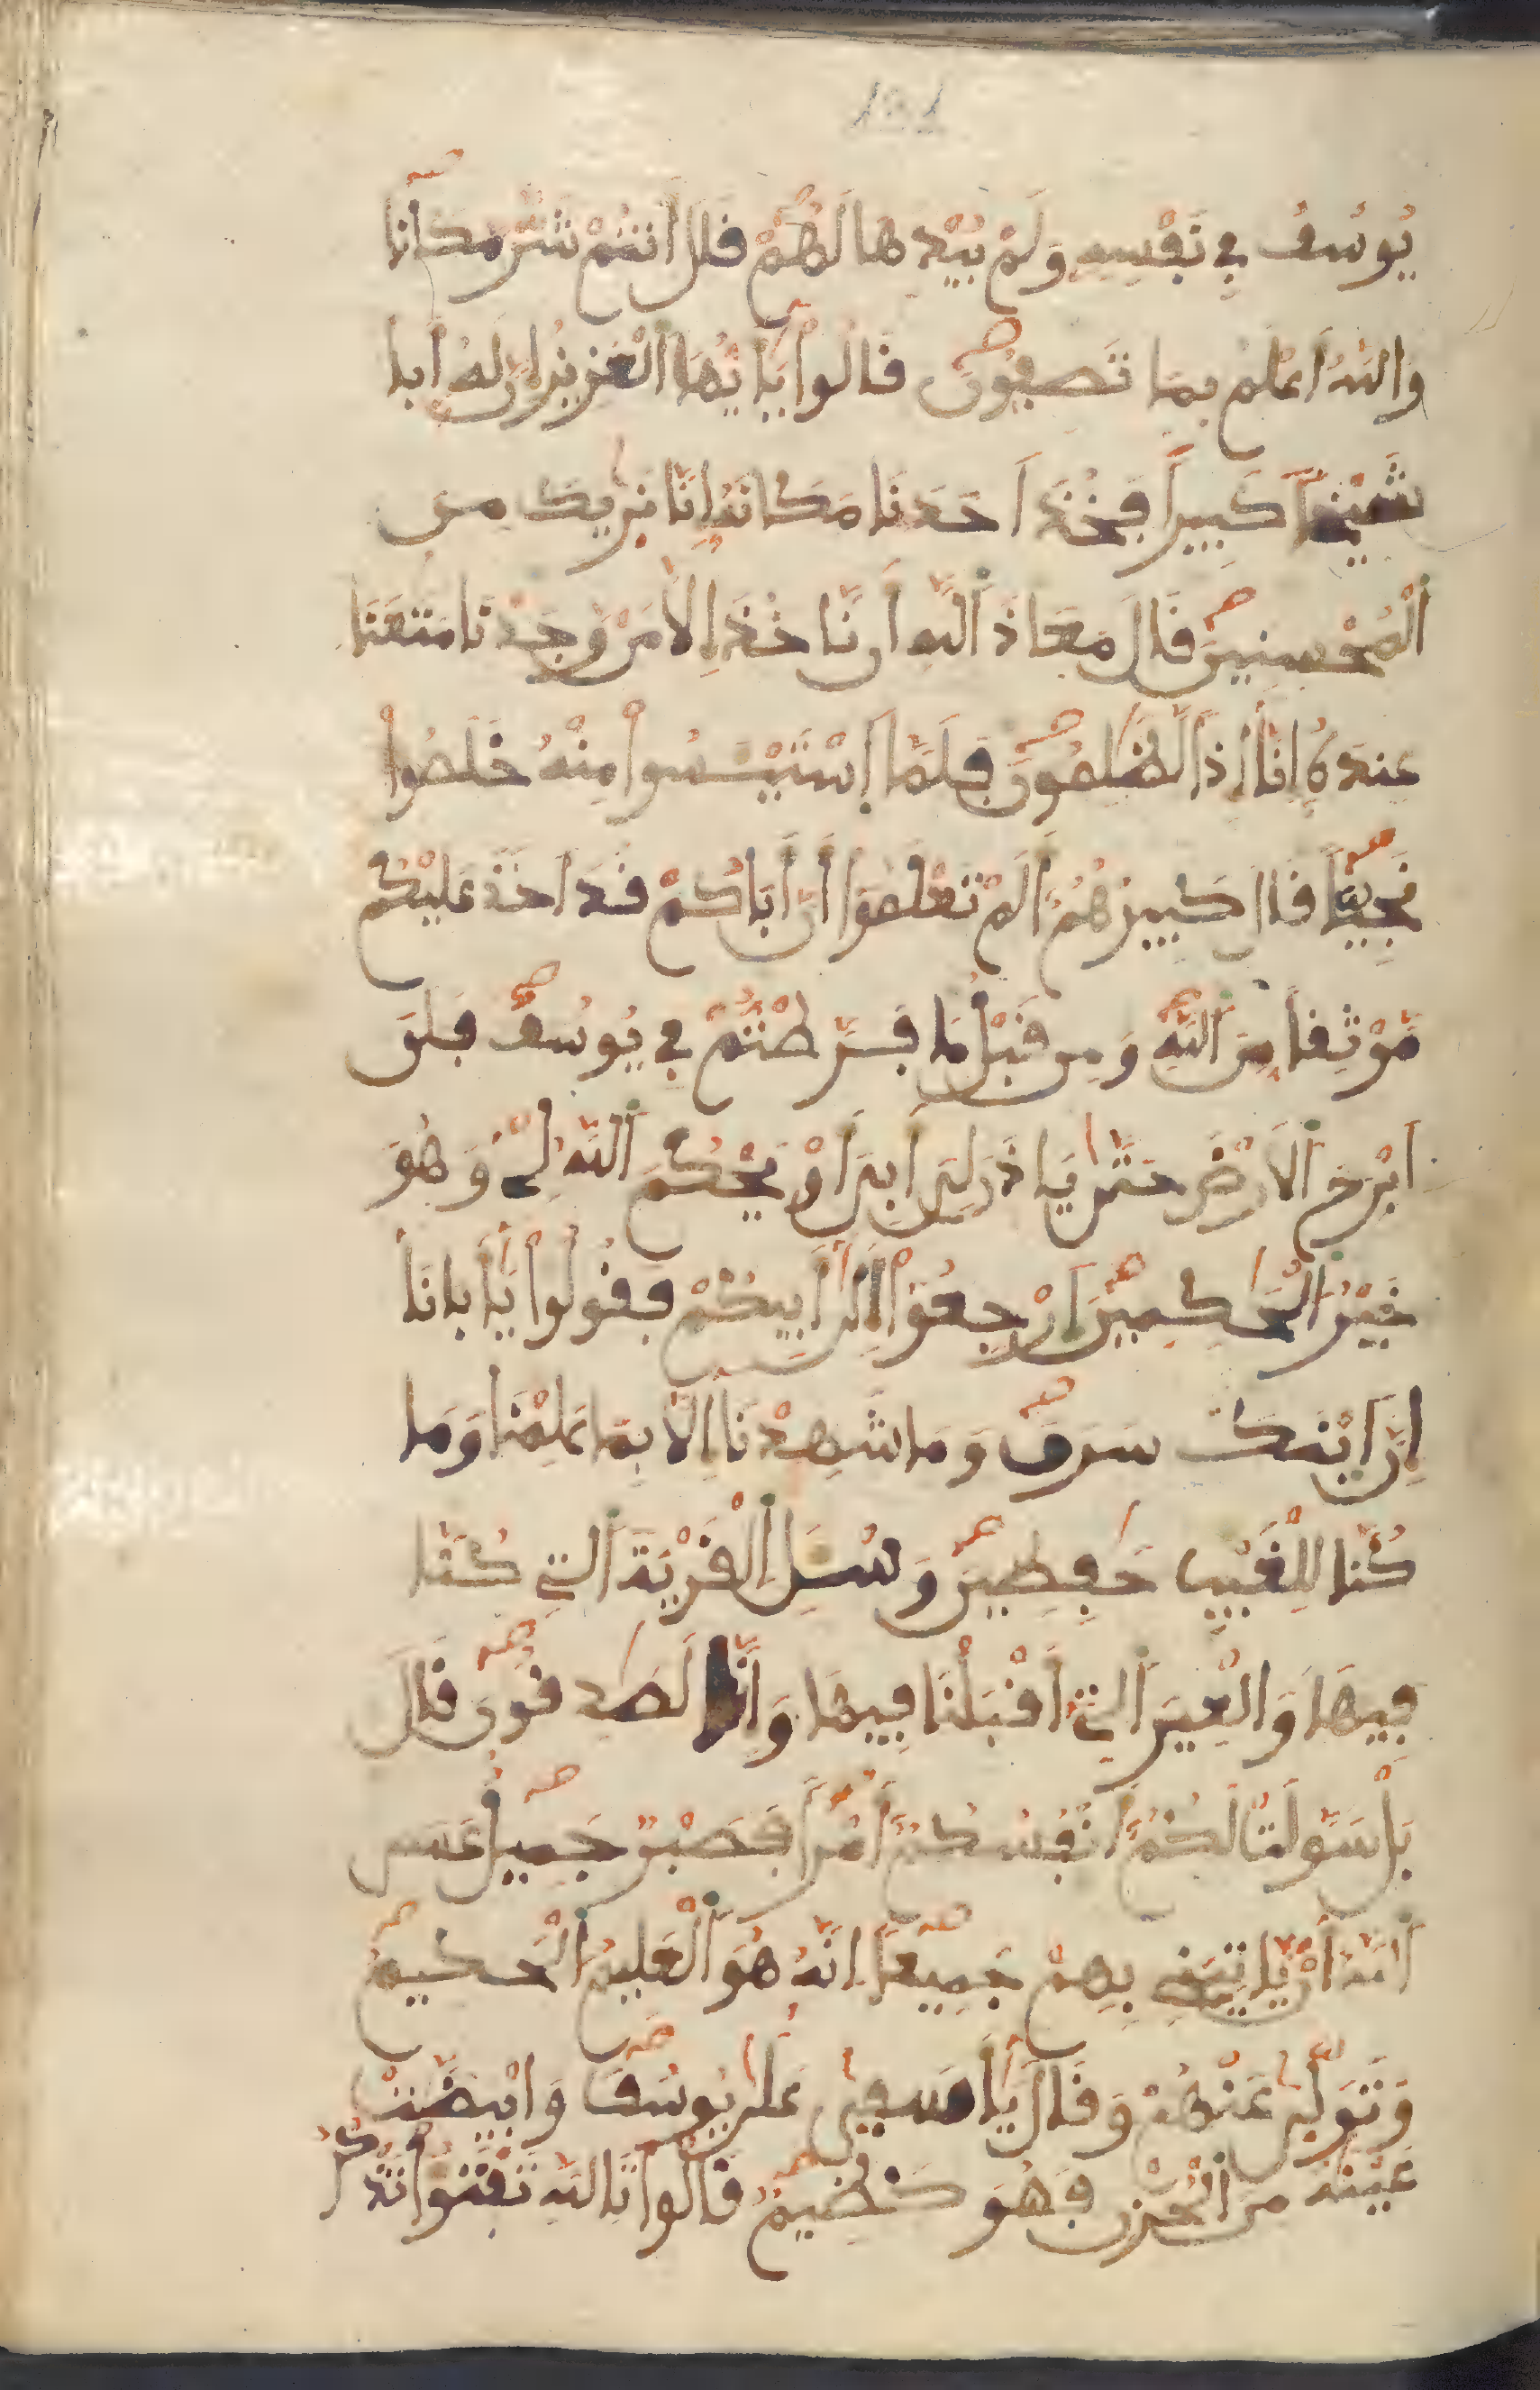 121
يُوسُفُ فِي نَفْسِهِ وَلَمْ يُبْدِهَا لَهُمْ قَالَ أَنتُمْ شَرٌّ مَّكَانًا
وَاللَّهُ أَعْلَمُ بِمَا تَصِفُونَ قَالُوا يَٰأَيُّهَا الْعَزِيزُ إِنَّ لَهُ أَبًا
شَيْخًا كَبِيرًا فَخُذْ أَحَدَنَا مَكَانَهُ إِنَّا نَرَىٰكَ مِنَ
الْمُحْسِنِينَ قَالَ مَعَاذَ اللَّهِ أَن نَّاخُذَ إِلَّا مَنْ وَجَدْنَا مَتَٰعَنَا
عِندَهُ إِنَّا إِذًا لَّظَٰلِمُونَ فَلَمَّا اسْتَيْـَٔسُوا مِنْهُ خَلَصُوا
نَجِيًّا قَالَ كَبِيرُهُمْ أَلَمْ تَعْلَمُوا أَنَّ أَبَاكُمْ قَدَ اَخَذَ عَلَيْكُم
مَّوْثِقًا مِّنَ اللَّهِ وَمِن قَبْلُ مَا فَرَّطتُمْ فِي يُوسُفَ فَلَنَ
اَبْرَحَ الْأَرْضَ حَتَّىٰ يَاذَنَ لِيَ أَبِيَ أَوْ يَحْكُمَ اللَّهُ لِي وَهُوَ
خَيْرُ الْحَٰكِمِينَ ارْجِعُوا إِلَىٰ أَبِيكُمْ فَقُولُوا يَٰأَبَانَا
إِنَّ ابْنَكَ سَرَقَ وَمَا شَهِدْنَا إِلَّا بِمَا عَلِمْنَا وَمَا
كُنَّا لِلْغَيْبِ حَٰفِظِينَ وَسْـَٔلِ الْقَرْيَةَ الَّتِي كُنَّا
فِيهَا وَالْعِيرَ الَّتِي أَقْبَلْنَا فِيهَا وَإِنَّا لَصَٰدِقُونَ قَالَ
بَلْ سَوَّلَتْ لَكُمْ أَنفُسُكُمْ أَمْرًا فَصَبْرٌ جَمِيلٌ عَسَى
اللَّهُ أَنْ يَّاتِيَنِي بِهِمْ جَمِيعًا إِنَّهُ هُوَ الْعَلِيمُ الْحَكِيمُ
وَتَوَلَّىٰ عَنْهُمْ وَقَالَ يَٰأَسَفَىٰ عَلَىٰ يُوسُفَ وَابْيَضَّتْ
عَيْنَٰهُ مِنَ الْحُزْنِ فَهُوَ كَظِيمٌ قَالُوا تَاللَّهِ تَفْتَؤُا تَذْكُرُ